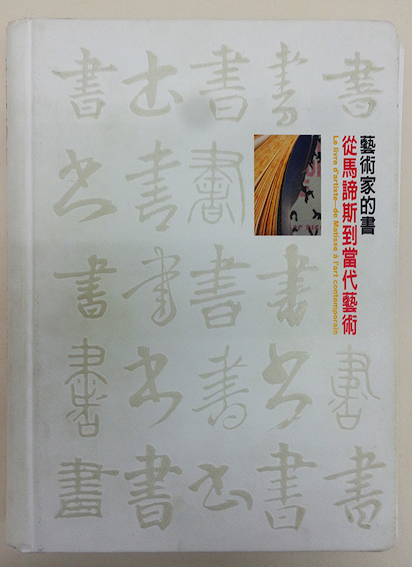 藝術家的書
從馬諦斯到當代藝術
Le livre d'artiste—de Matisse à l'art contemporain
書書書書書
書書書
書書書書
書書書書書
書書書書書